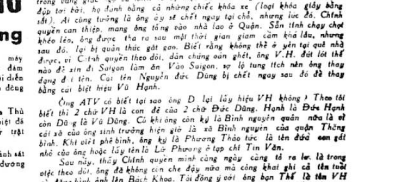 đập tơi bời, họ đánh bằng cả những chiếc khóa xe (loại khóa giây bằng
sắt). Ai cũng tưởng là ông ấy sẽ chết ngay tại chỗ, nhưng lúc đó. Chính
quyền can thiệp, mang ông tống vào nhà lao ở Quận. Sẵn tính chạy chọt
khéo léo, ông được tha ra sau một thời gian giam cầm khá lâu, nhưng
sau đó, lại bị quần thúc gắt gao. Biết rằng không thể ở yên tại quê nhà
được, vì Chính quyền theo dõi, dân chúng oán ghét, ông V.H. đút lót thế
nào để xin đi Saigon làm ăn. Vào Saigon, sợ lộ tung tích nên ông thay
dạng đi tên. Cái tên Nguyễn đức Dũng bị chết ngay sau đó để thay
bằng cái biệt hiệu Vũ Hạnh.
Ông ATV có biết tại sao ông D. lại lấy hiệu VH không? Theo tôi
biết thì 2 chữ VH là con đẻ của 2 chữ Đức Dũng. Hạnh là Đức Hạnh
còn Dũ là Vũ Dũng. Cũ không còn ký là Bình nguyên quân nữa là vì
cái xã của ông sinh trưởng hiện giờ là xã Bình nguyên của quận Thăng
bình. Khi viết phê bình, ông ký là Phương Thảo tức là tên đứa con gái
nhỏ của ông hoặc lấy tên là Lữ Phương ở tạp chí Tin Văn.
Sau này, thấy Chính quyền mình càng ngày càng tỏ ra lơ là trong
việc theo dõi, ông đã không còn che đậy nữa mà công khai ghi cả tên tuổi
Bách Khoa. Tôi đồng ý với ông bạn Thế là tên VH
ng
máy
Thủ